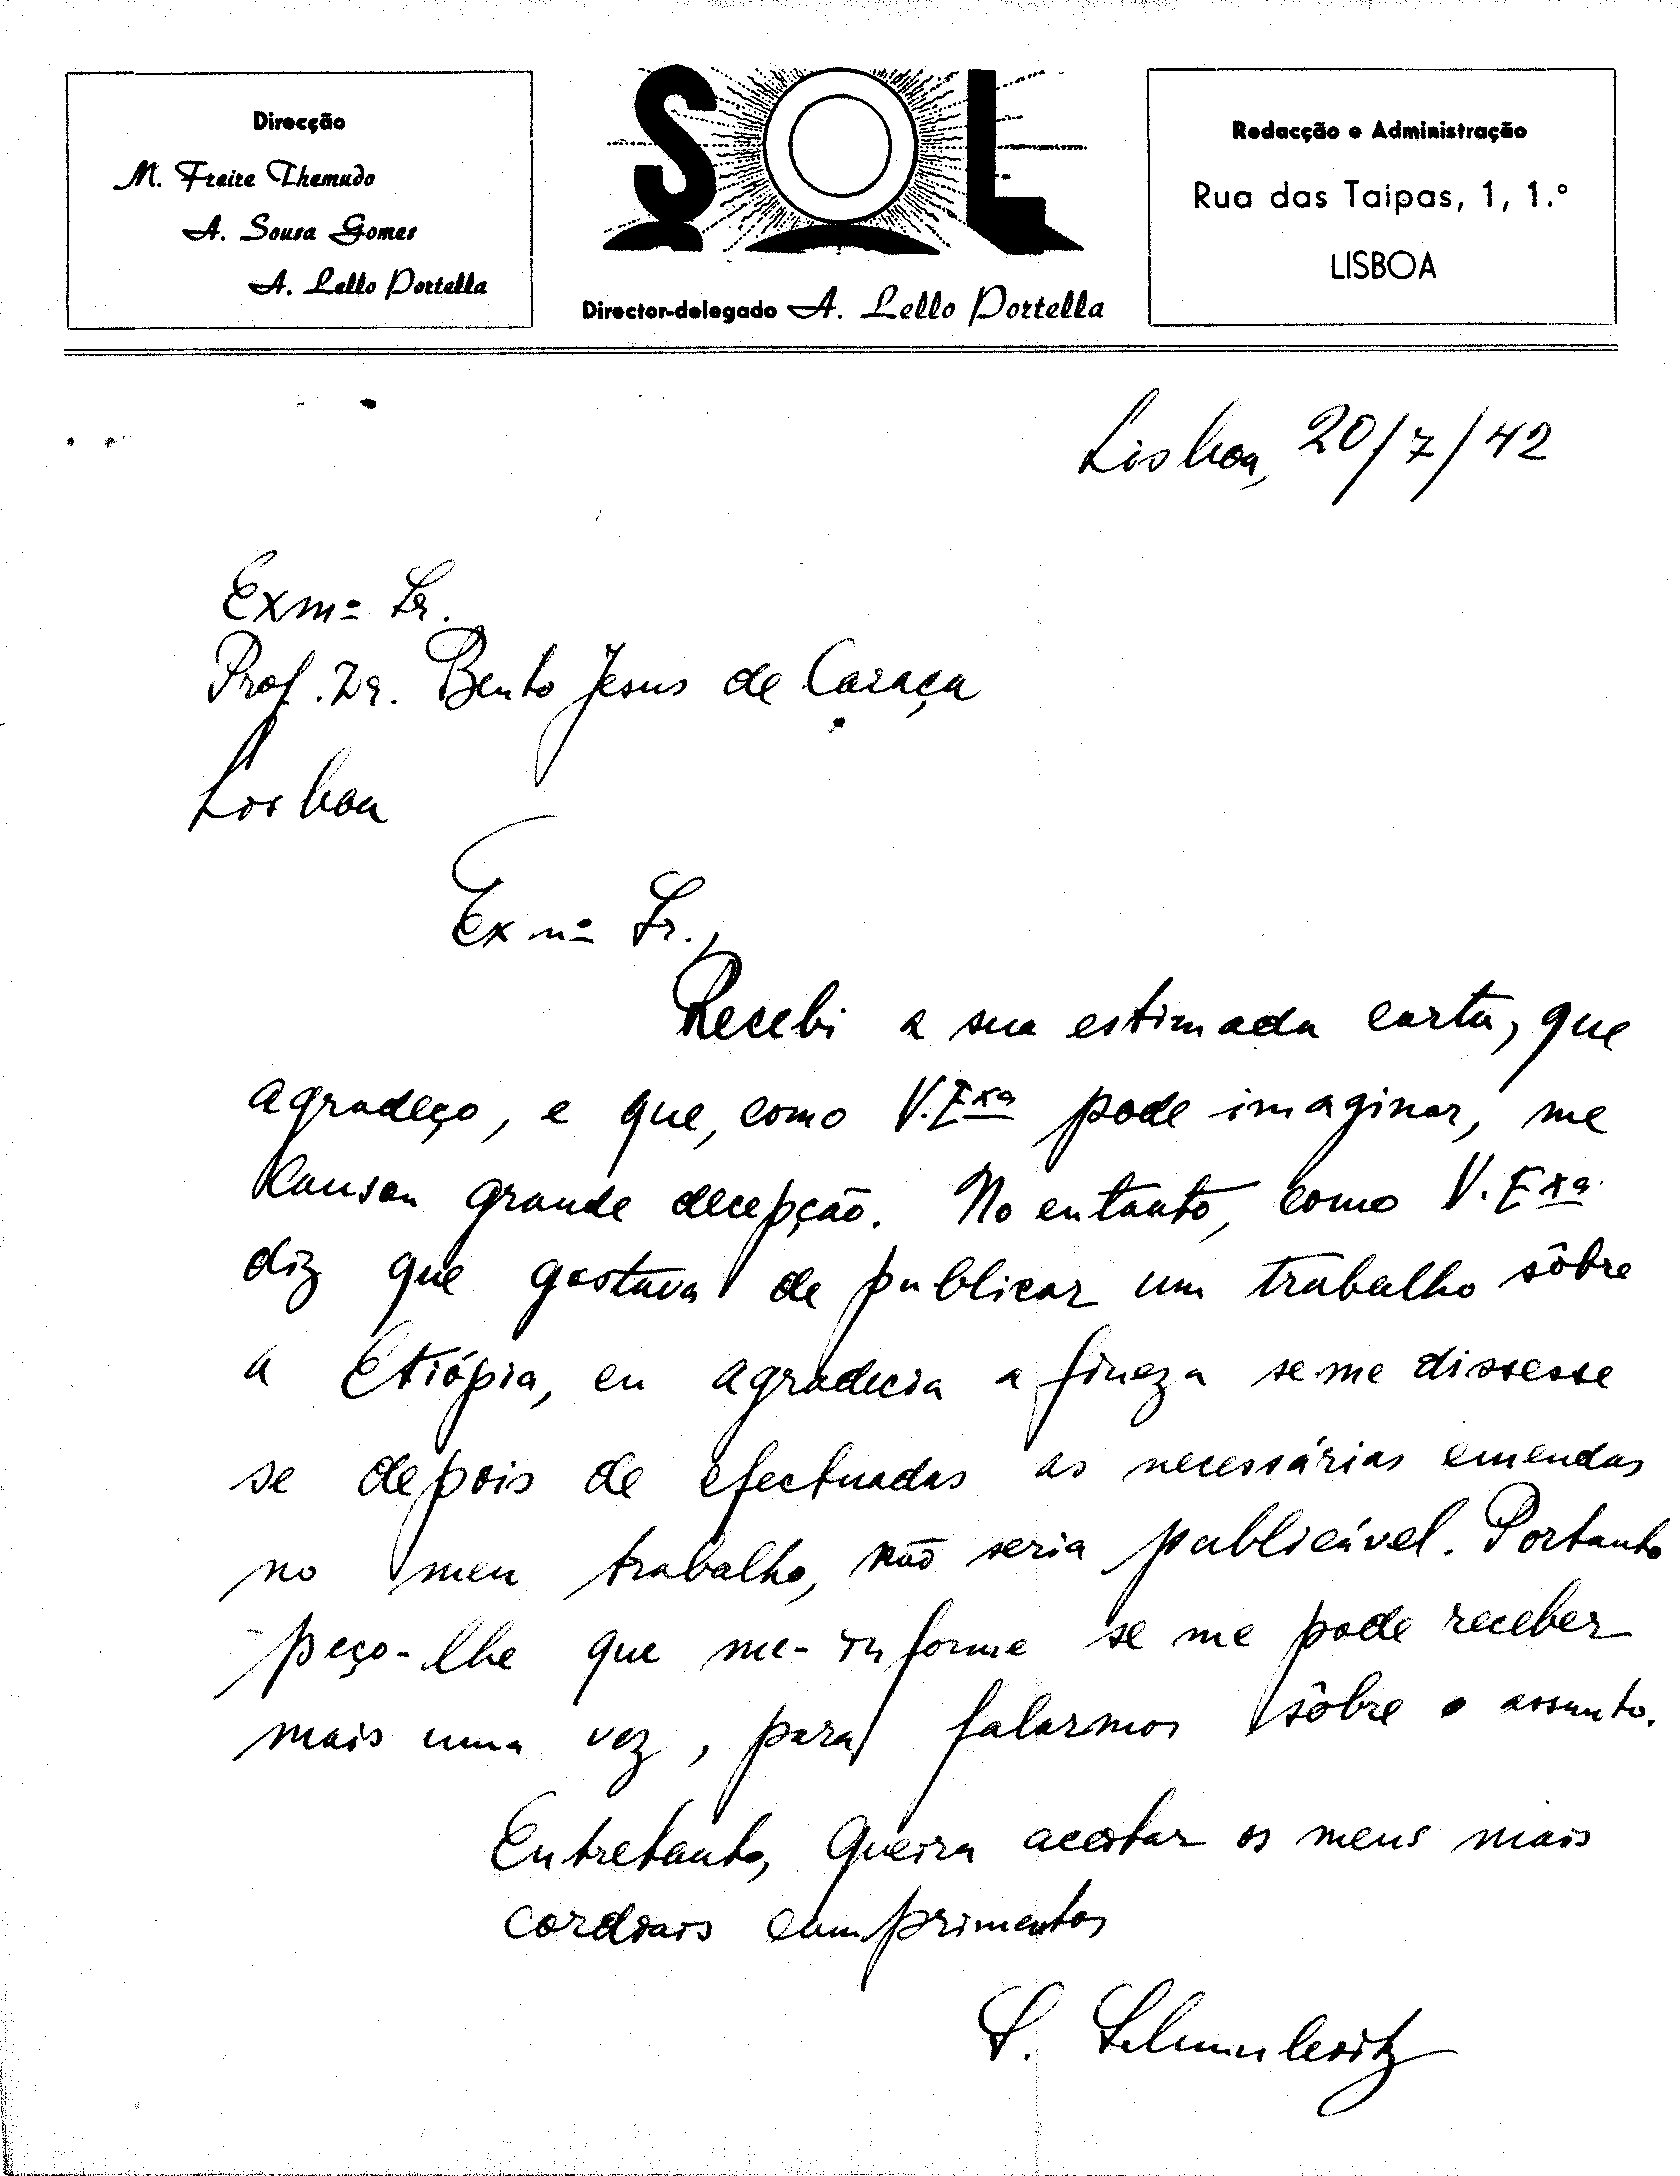 Direcção
M. Freire Themudo
A. Sousa Gomes
A. Lello Portella
SOL
Director-delegado A. Lello Portella
Redacção e Administração
Rua das Taipas, 1, 1.º
LISBOA
Lisboa, 20/7/42
Exmº Sr.
Prof. Dr. Bento Jesus de Caraça
Lisboa
Exmº Sr.,
Recebi a sua estimada carta, que
agradeço, e que, como V. Exª pode imaginar, me
causou grande decepção. No entanto, como V. Exª
diz que gostava de publicar um trabalho sôbre
a Etiópia, eu agradecia a fineza se me dissesse
se depois de efectuadas as necessárias emendas
no meu trabalho, não seria publicável. Portanto
peço-lhe que me-informe se me pode receber
mais uma vez, para falarmos sôbre o assunto.
Entretanto, queira aceitar os meus mais
cordiais cumprimentos
S.